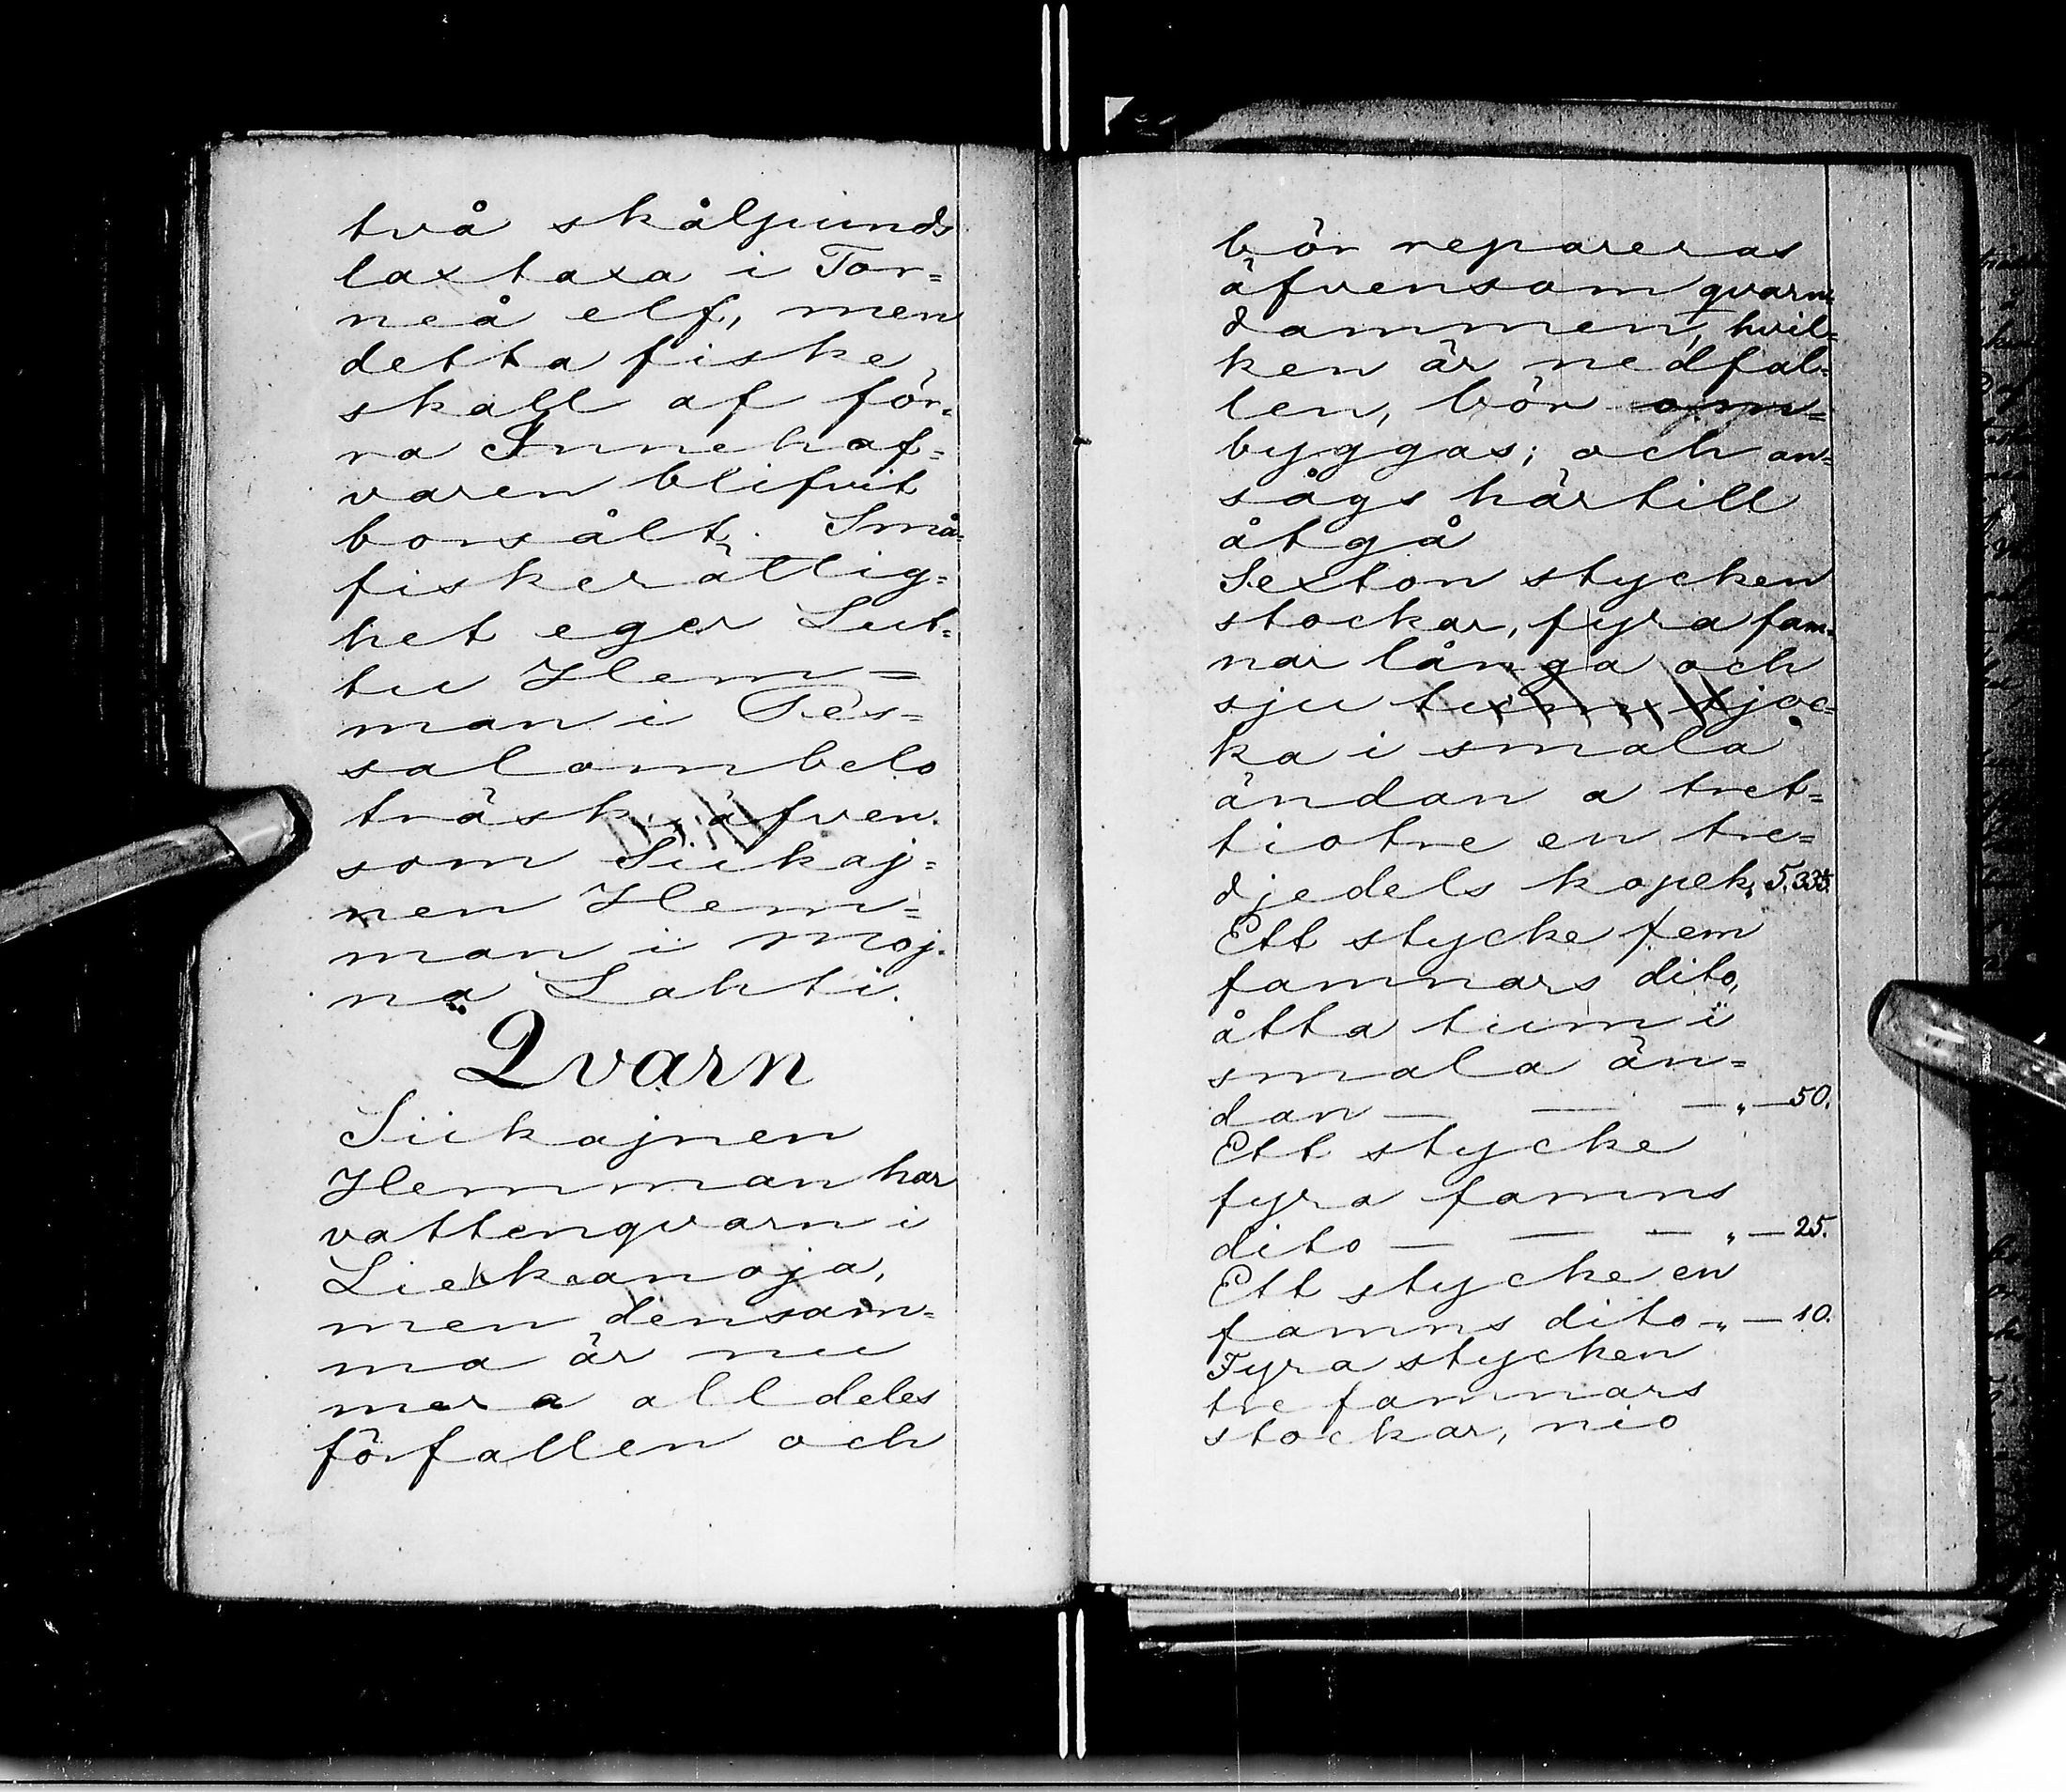 två skålpunds
laxtaxa i Tor=
neå elf, men
detta fiske
skall af för=
ra Innehaf=
varen blifvit
borsålt. Små=
fiskerättig=
het eger Lut=
tu Hem=
man i Pes=
salombelo
träsk, äfven=
som Siikaj=
nen Hem=
man i Moj=
na Lahti.
Qvarn
Siikajnen
Hemman har
vattenqvarn i
Liekkanoja,
men densam=
ma är nu
mera alldeles
förfallen och
bör repareras
äfvensom qvarn
dammen, hvil=
ken är nedfal=
len, bör om=
byggas; och an=
sågs härtill
åtgå
Sexton stycken
stockar, fyra fam=
nar långa och
sju tum tjoc=
ka i smala
ändan a tret=
tiotre en tre=
djedels kopek, 5.33⅓.
Ett stycke fem
famnars dito,
åtta tum i
smala än=
dan — — — „ — 50.
Ett stycke
fyra famns
dito — — — „ — 25.
Ett stycke en
famns dito — „ — 10.
Fyra stycken
tre famnars
stockar, nio